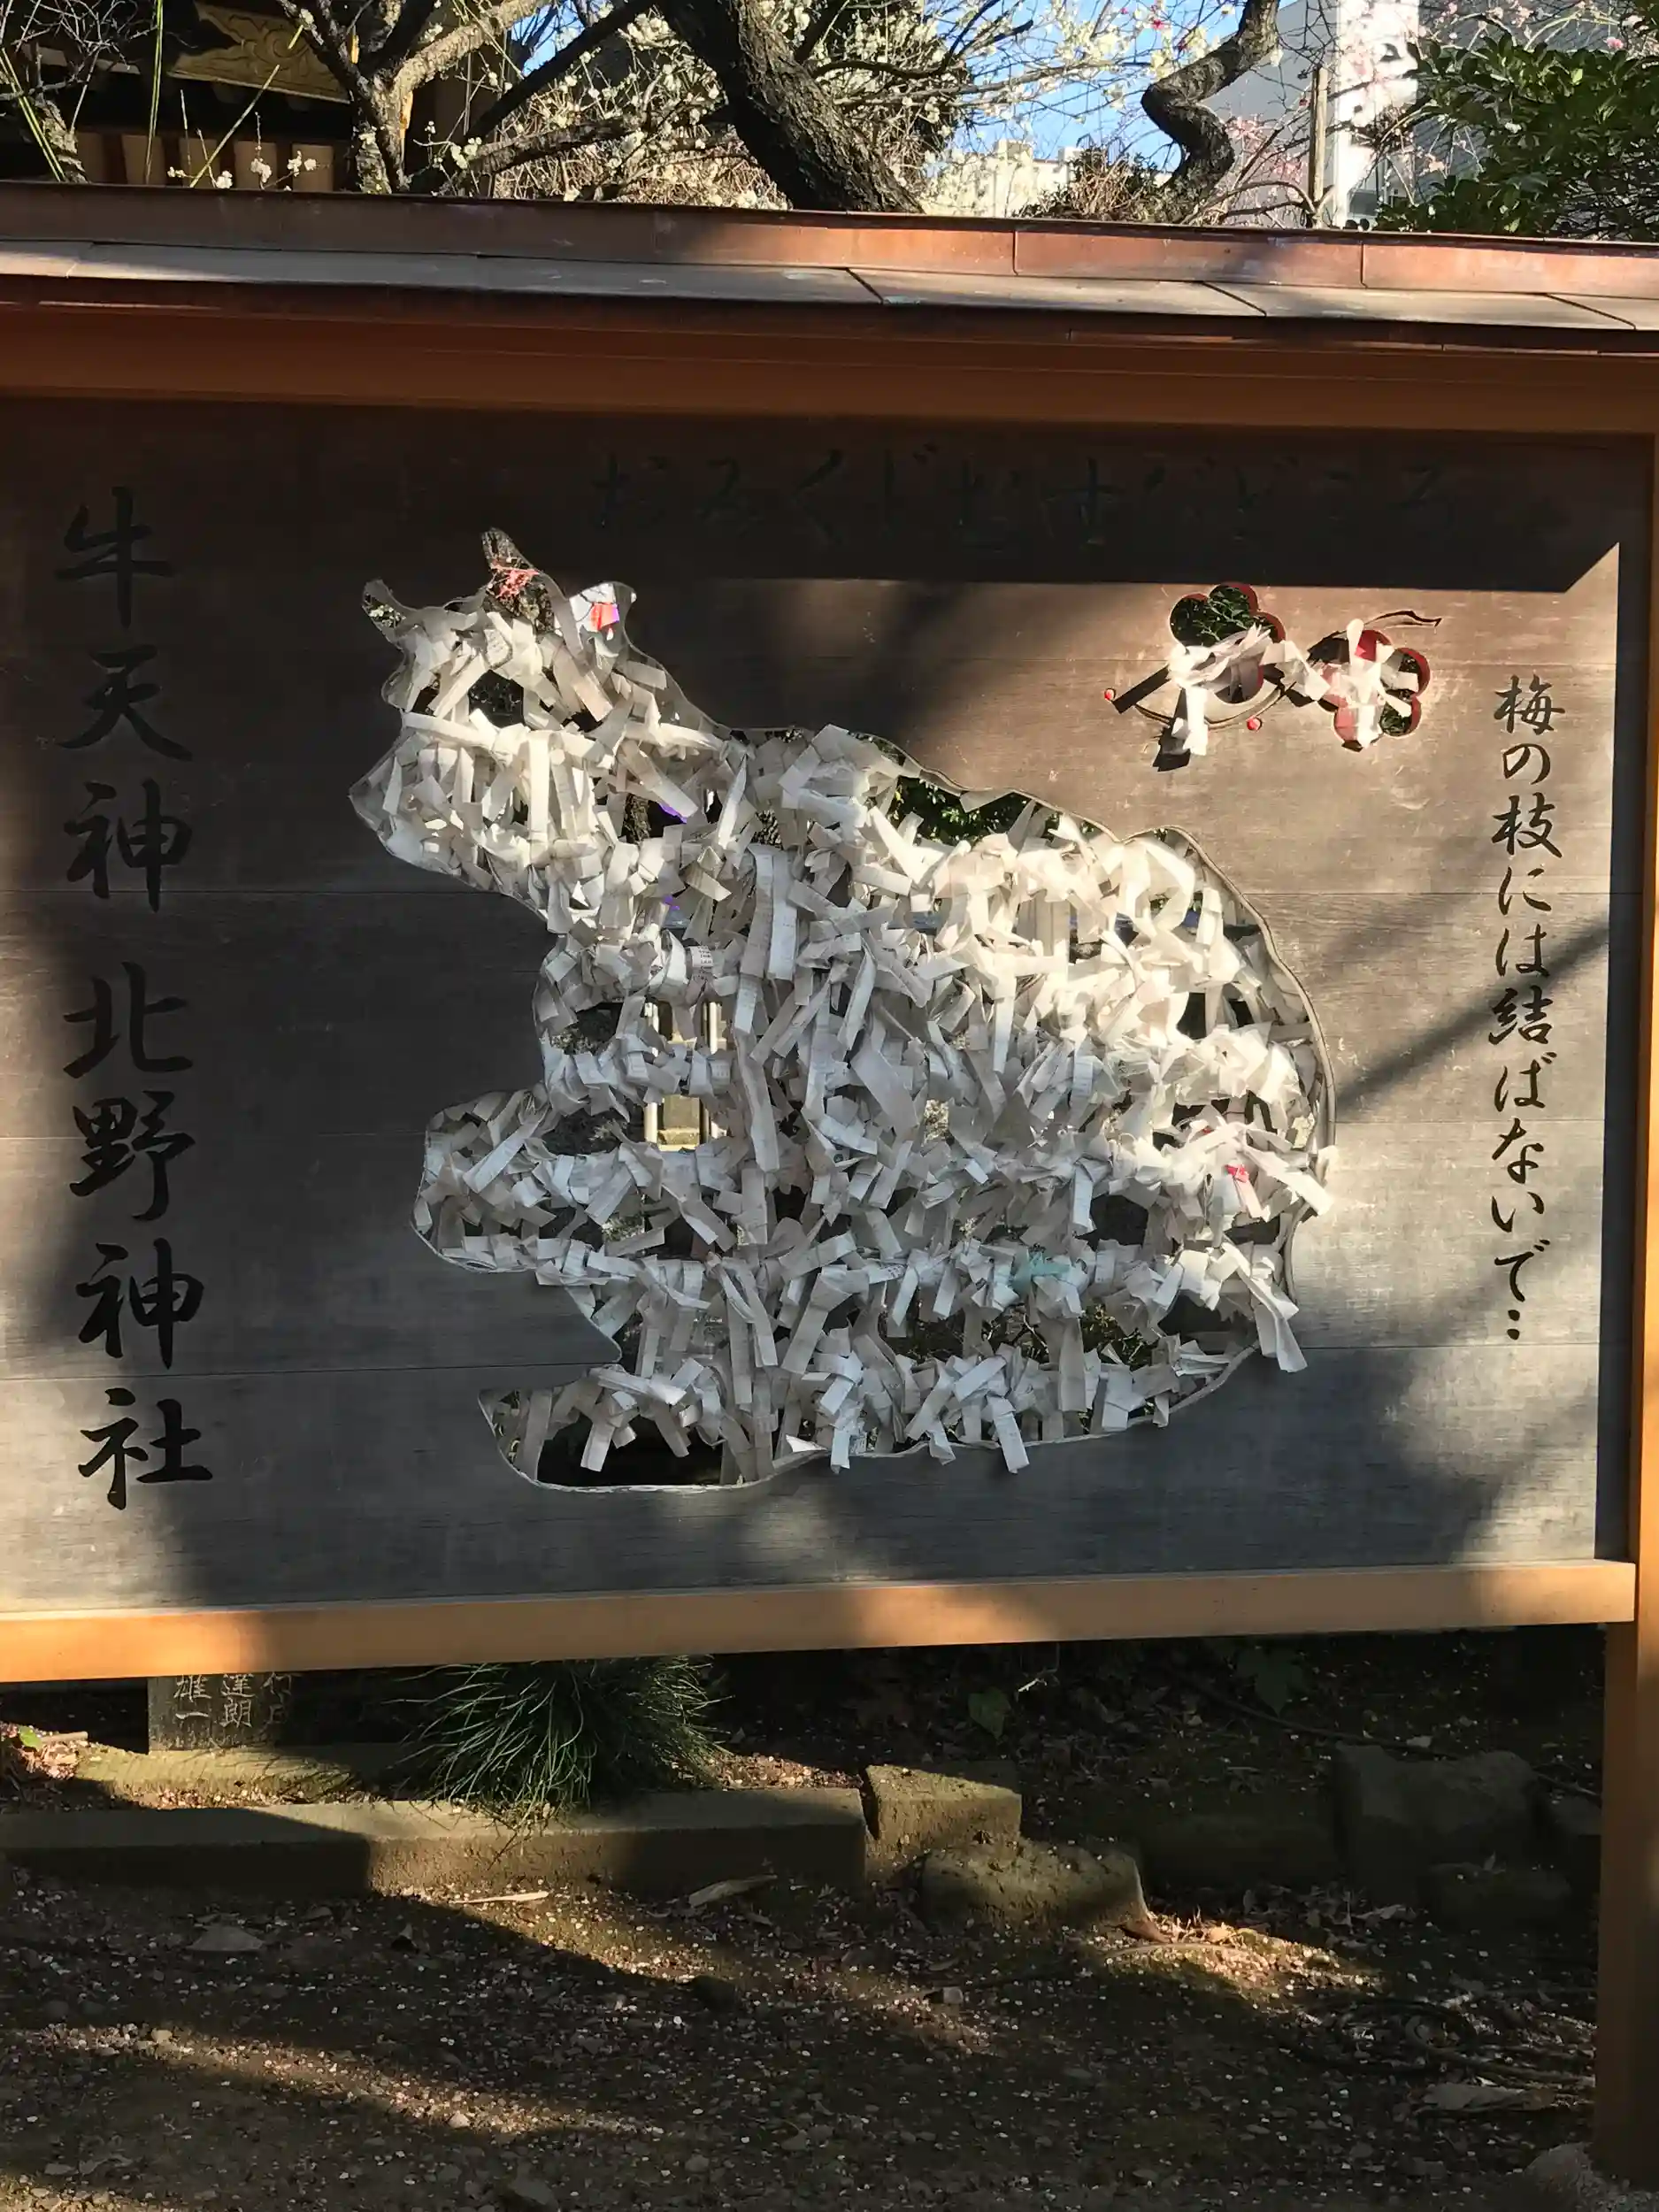 おみくじむすびどころ
梅の枝には結ばないで…
牛天神北野神社
達朗
雄一